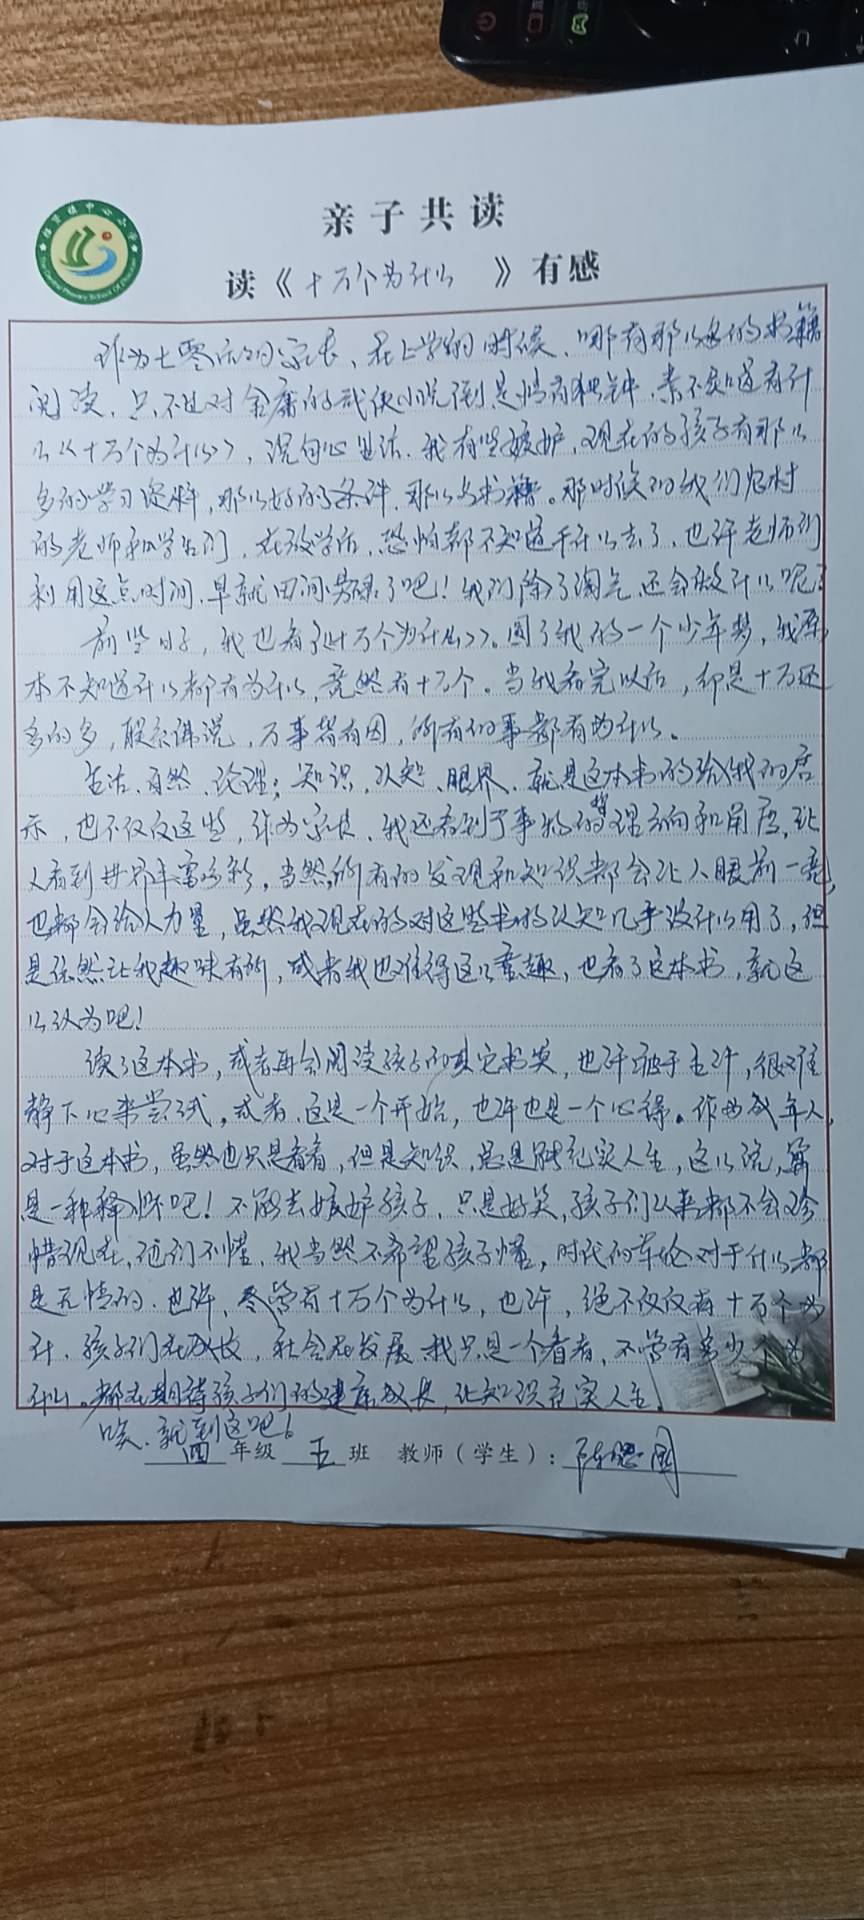 亲子共读
读《十万个为什么》有感
作为七零后的家长、在上学的时候、哪有那么多的书籍
阅读、只不过对金庸的武侠小说倒是情有独钟、素不知道有什
么《十万个为什么》，说句心里话、我有些嫉妒，现在的孩子有那么
多的学习资料，那么好的条件、那么多书籍。那时候的我们农村
的老师和学生们、在放学后、恐怕都不知道干什么去了，也许老师们
利用这点时间、早就田间劳碌了吧！我们除了淘气、还会做什么呢？
前些日子，我也看了《十万个为什么》。圆了我的一个少年梦，我原
本不知道什么都有为什么，竟然有十万个。当我看完以后，却是十万还
多的多，俗话说，万事皆有因，所有的事都有为什么。
生活、自然、论理；知识、认知、眼界、就是这本书的给我的启
示，也不仅仅这些，作为家长、我还看到了事物的哲理方向和角度，让
人看到世界丰富多彩，当然，所有的发现和知识都会让人眼前一亮，
也都会给人力量，虽然我现在的对这些书的认知几乎没什么用了，但
是依然让我趣味有所，或者我也难得这么童趣，也看了这本书，就这
么认为吧！
读了这本书，或者再会阅读孩子的其它书类，也许碍于生计，很难
静下心来尝试，或者、这是一个开始，也许也是一个心得。作为成年人，
对于这本书，虽然也只是看看，但是知识，总是能充实人生，这么说，算
是一种释怀吧！不能去嫉妒孩子、只是好笑，孩子们从来都不会珍
惜现在，他们不懂、我当然不希望孩子懂，时代的车轮对于什么都
是无情的、也许、尽管有十万个为什么，也许，绝不仅仅有十万个为
什、孩子们在成长，社会在发展、我只是一个看者，不管有多少个为
什么。都在期待孩子们的健康成长，让知识充实人生。
唉、就到这吧。
四年级五班 教师（学生）：